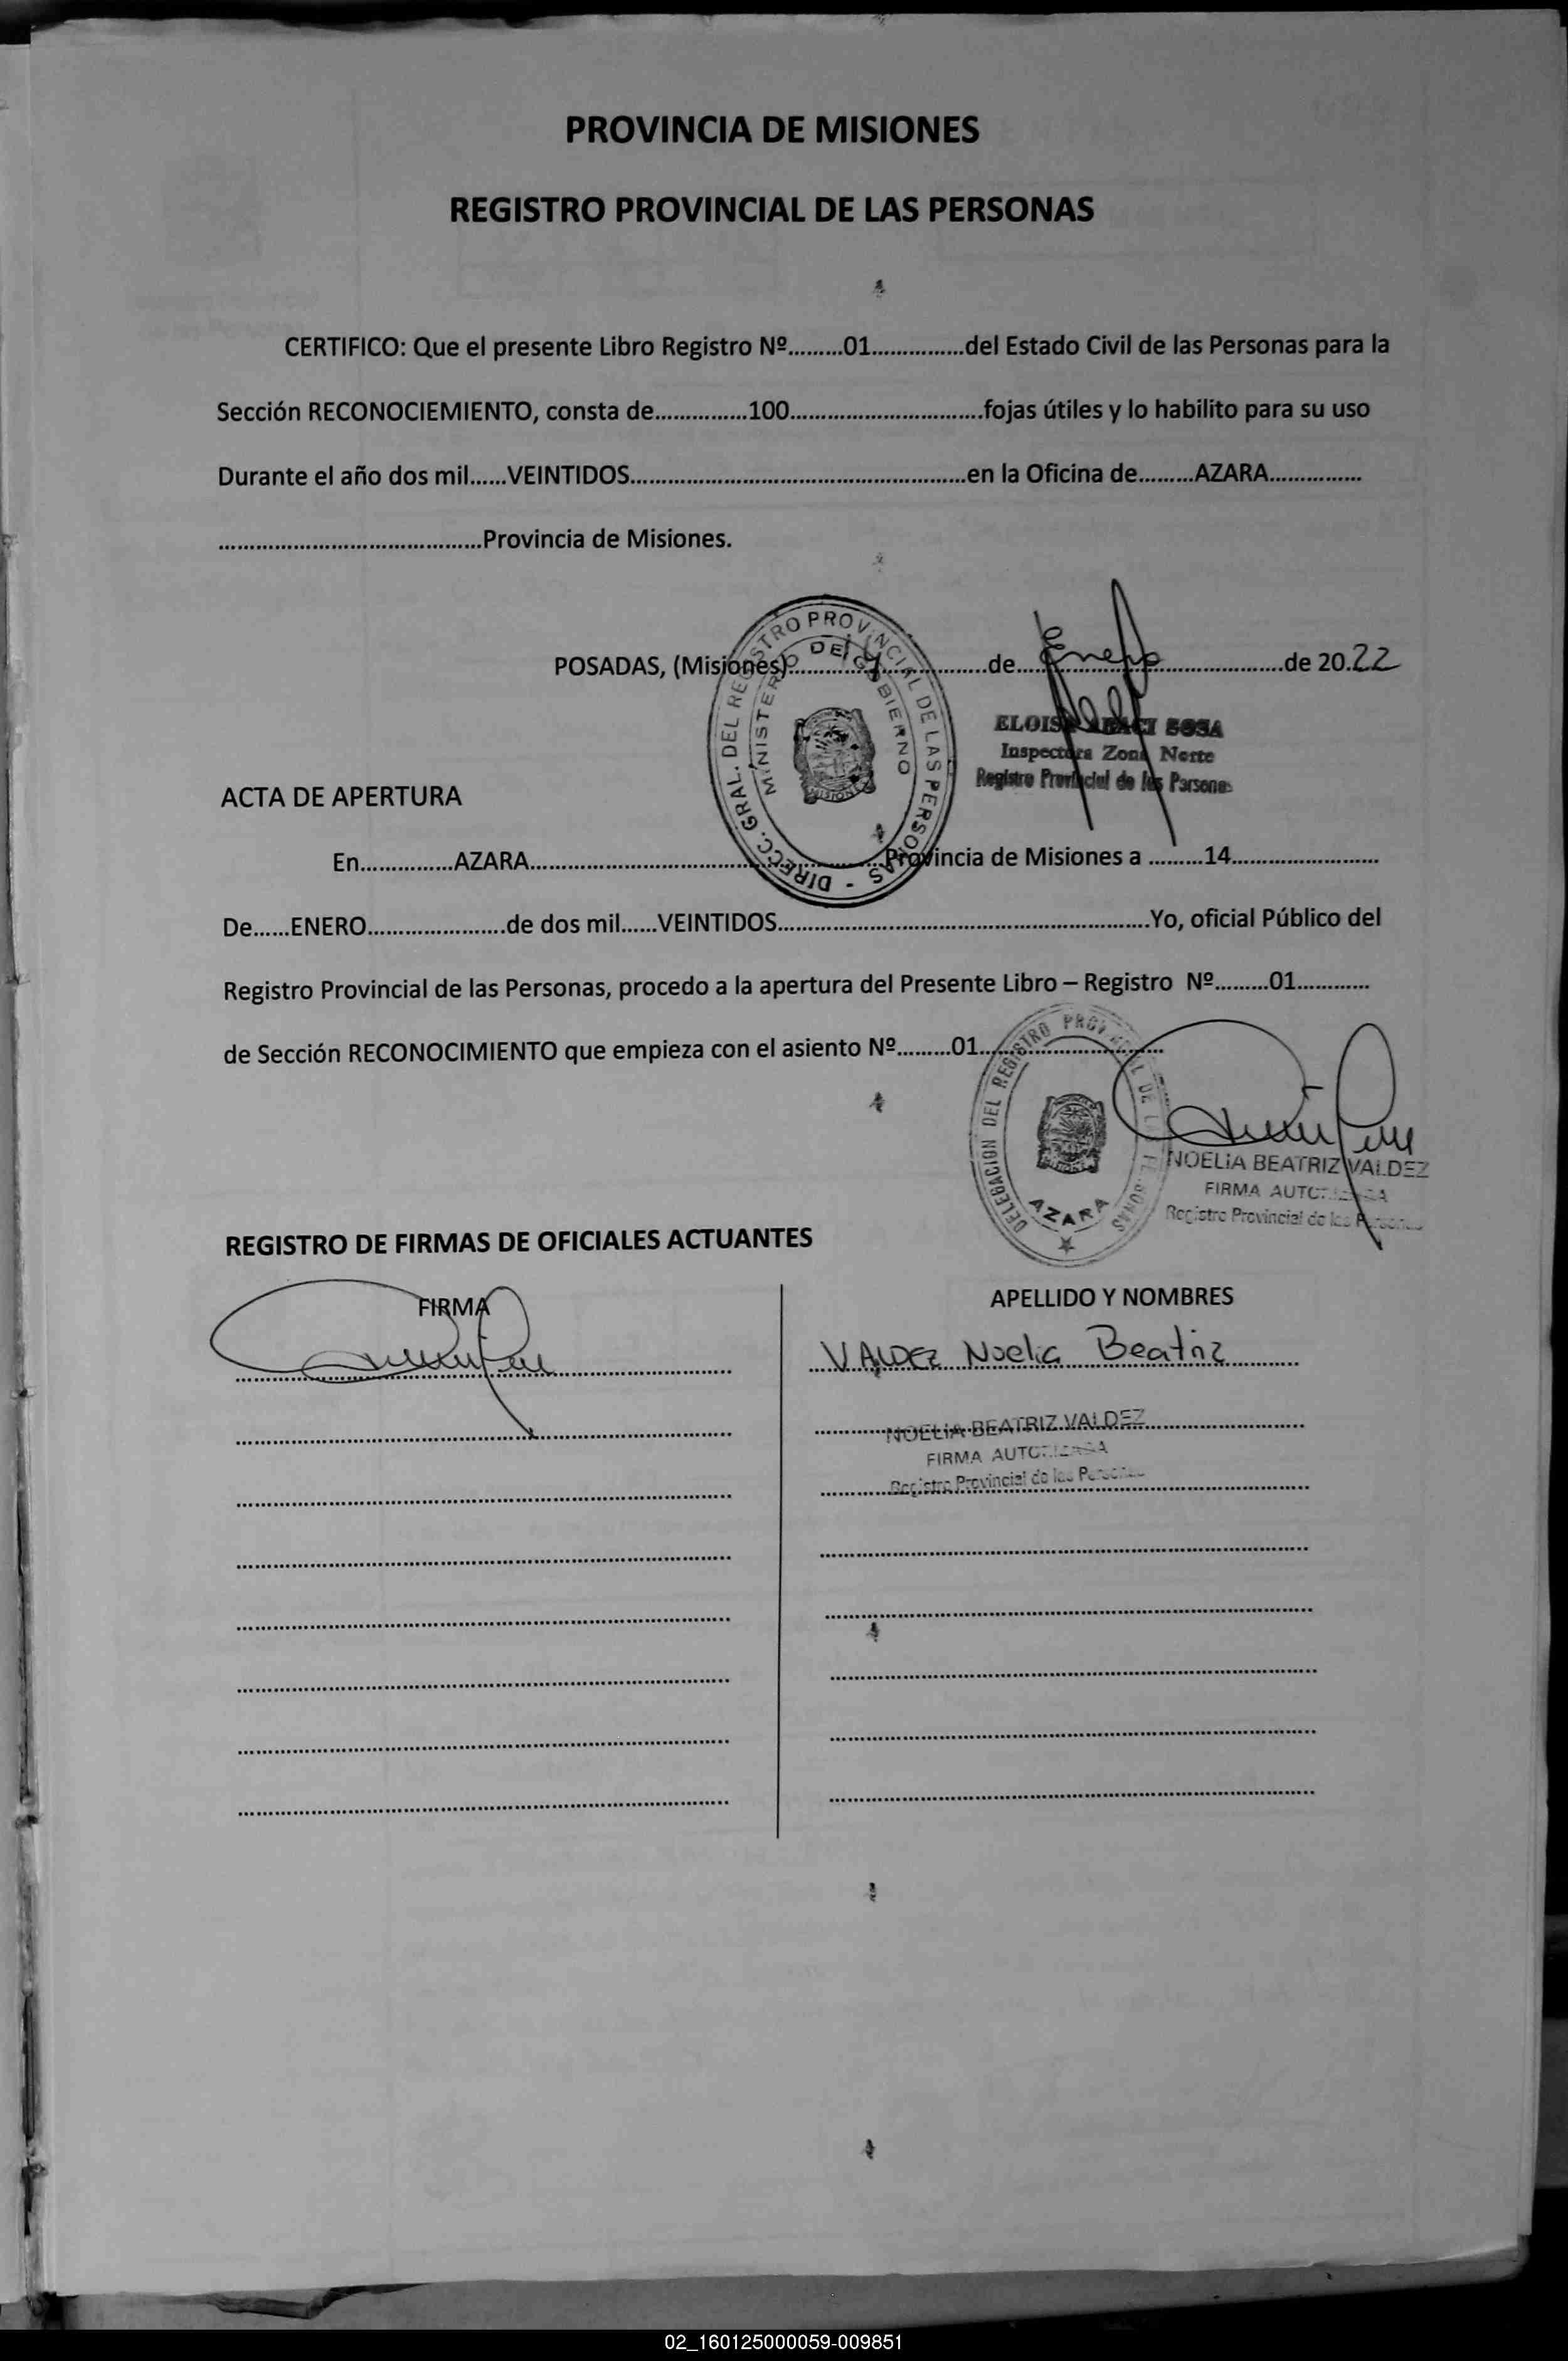 PROVINCIA DE MISIONES
REGISTRO PROVINCIAL DE LAS PERSONAS
CERTIFICO: Que el presente Libro Registro Nº.........01...............del Estado Civil de las Personas para la
Sección RECONOCIEMIENTO, consta de...............100...............................fojas útiles y lo habilito para su uso
Durante el año dos mil......VEINTIDOS.......................................................en la Oficina de.........AZARA...............
...........................................Provincia de Misiones.
POSADAS, (Misiones)................................de....Enero....................................de 20.22
DIRECC. GRAL. DEL REGISTRO PROVINCIAL DE LAS PERSONAS -
MINISTERIO DE GOBIERNO
MISIONES
SOSA
Inspectora Zona Norte
Registro Provincial de las Personas
ACTA DE APERTURA
En...............AZARA..........................................................Provincia de Misiones a .........14........................
De......ENERO.......................de dos mil......VEINTIDOS.............................................................Yo, oficial Público del
Registro Provincial de las Personas, procedo a la apertura del Presente Libro – Registro Nº.........01............
de Sección RECONOCIMIENTO que empieza con el asiento Nº.........01..............................
DELEGACION DEL REGISTRO PROVINCIAL DE LAS PERSONAS
AZARA
NOELIA BEATRIZ VALDEZ
FIRMA AUTORIZADA
Registro Provincial de las Personas
REGISTRO DE FIRMAS DE OFICIALES ACTUANTES
FIRMA
APELLIDO Y NOMBRES
VALDEZ Noelia Beatriz
NOELIA BEATRIZ VALDEZ
FIRMA AUTORIZADA
Registro Provincial de las Personas
02_160125000059-009851